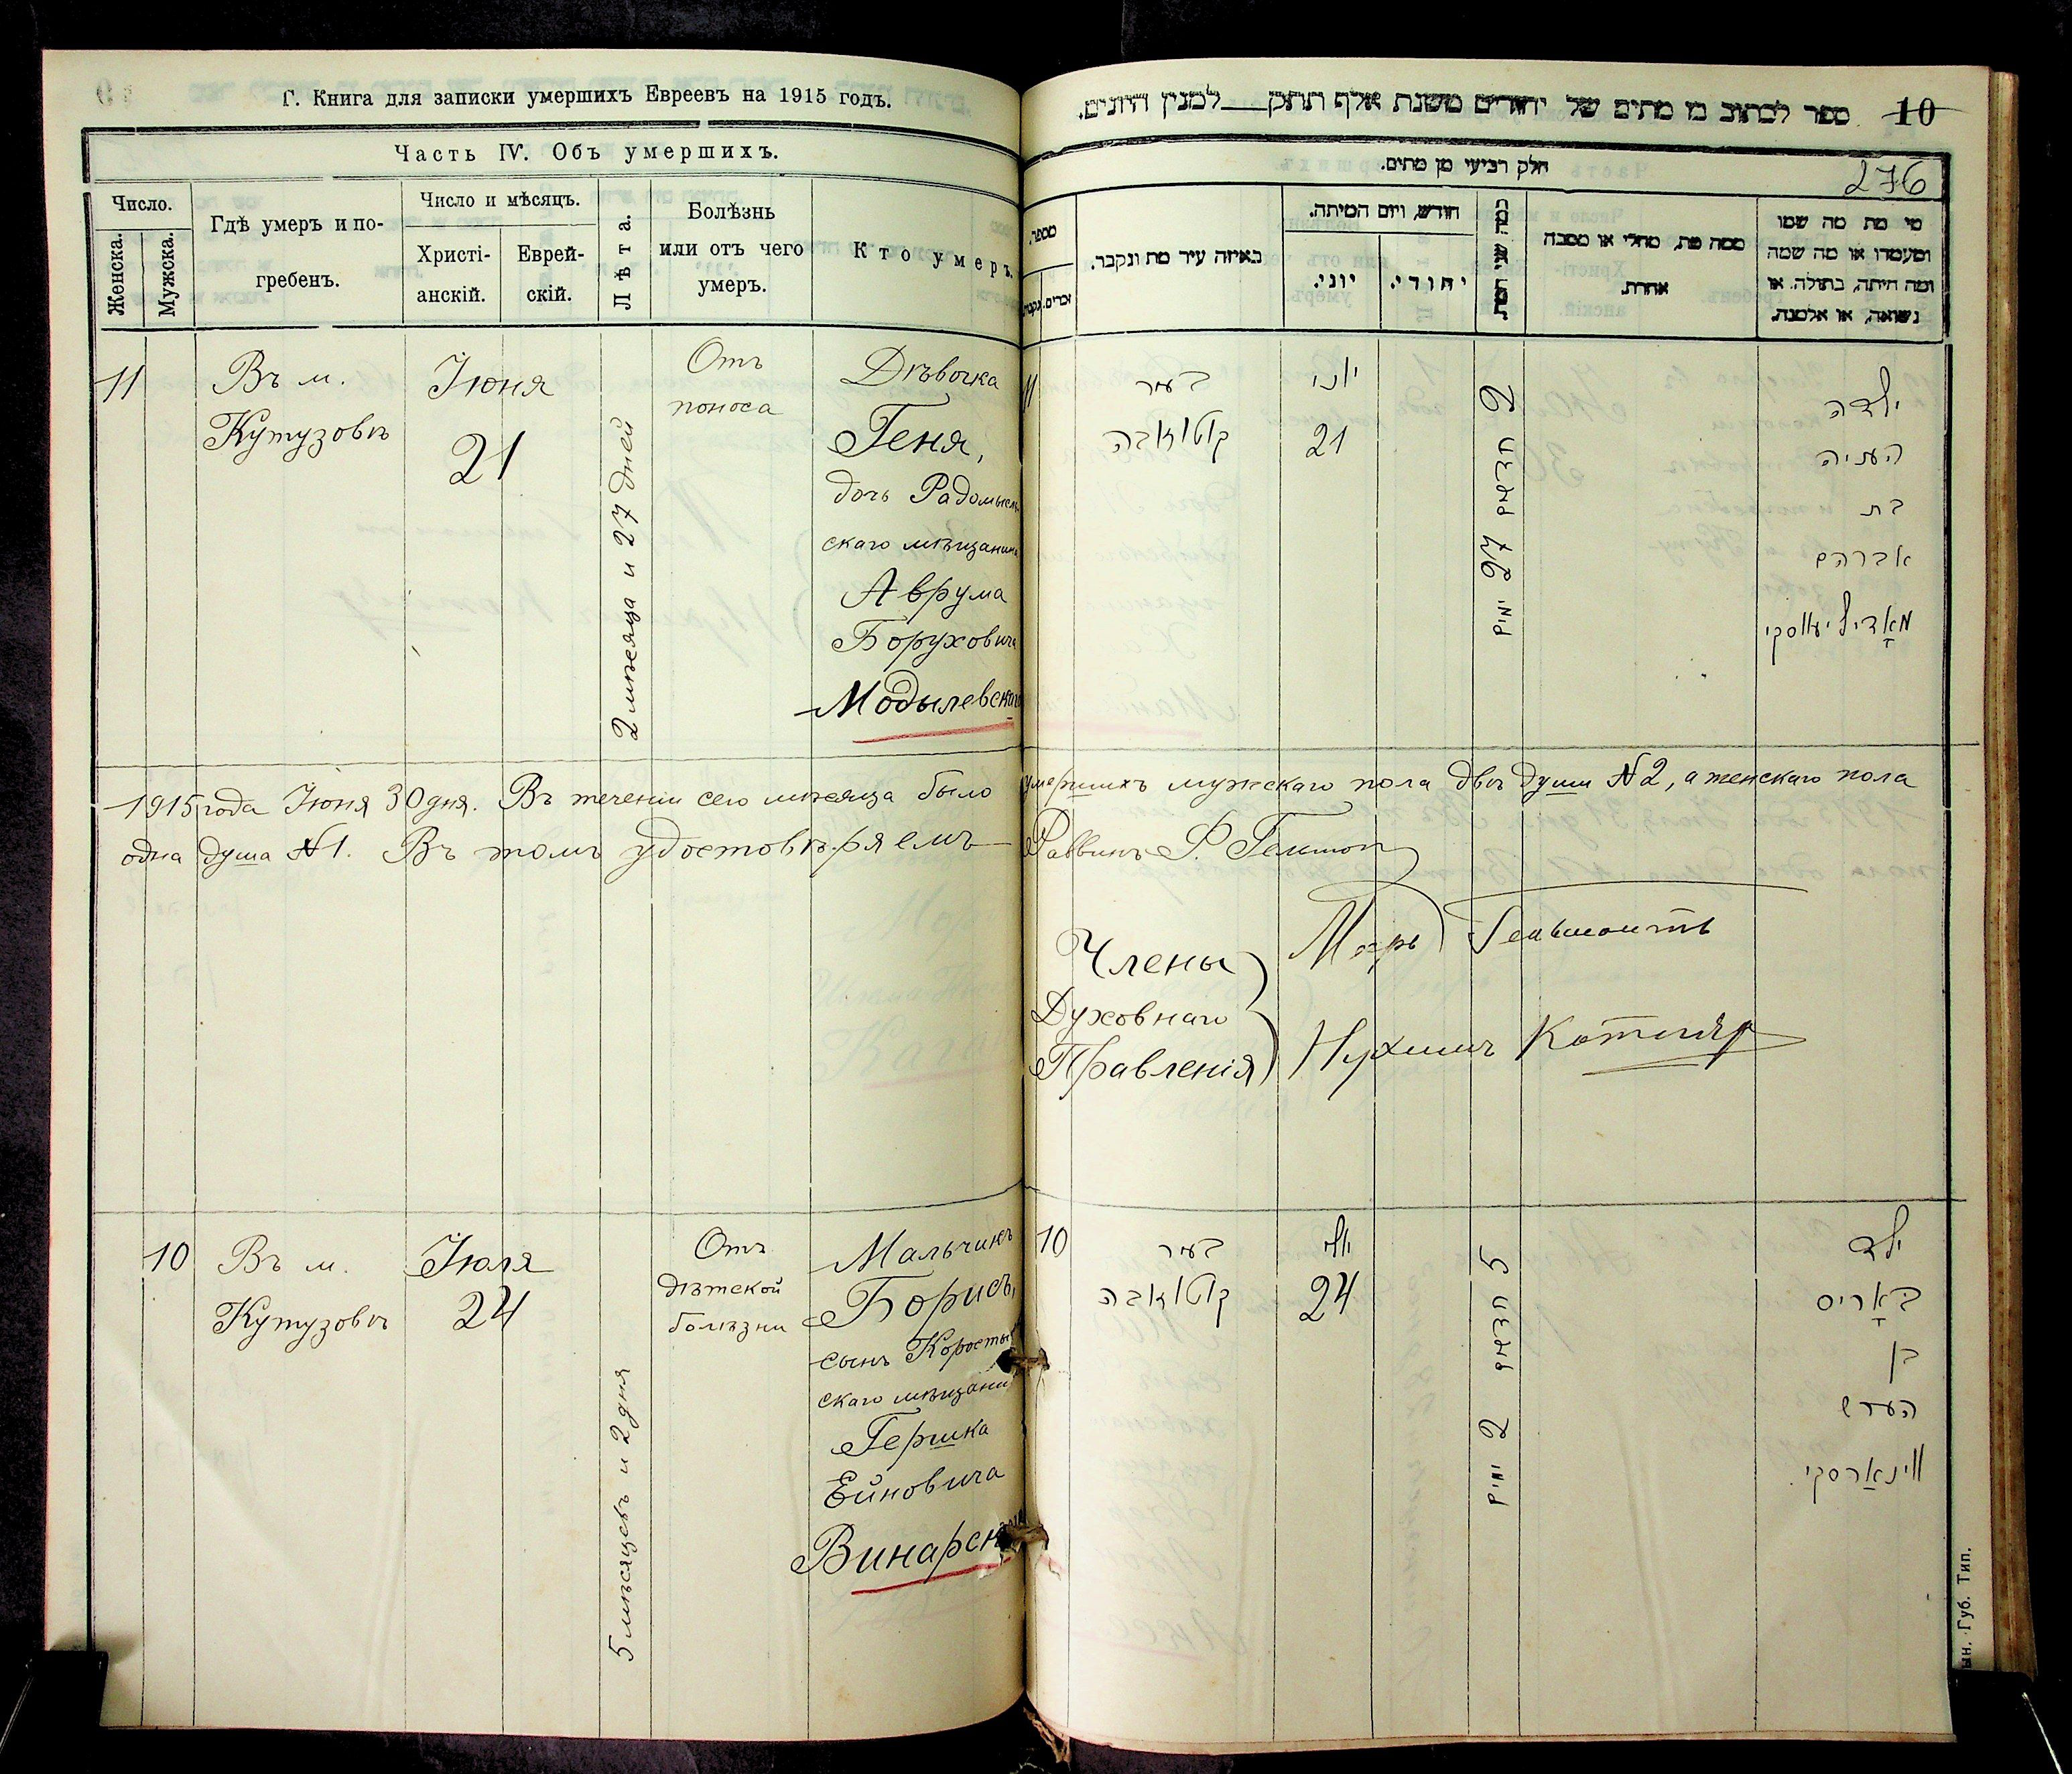 Г. Книга для записки умершихъ Евреевъ на 1915 годъ.
Часть IV. Объ умершихъ.
Число.
Женска.
Мужска.
Гдѣ умеръ и по-
гребенъ.
Число и мѣсяцъ.
Христі-
анскій.
Еврей-
скій.
Лѣта.
Болѣзнь
или отъ чего
умеръ.
Кто умеръ.
11
Въ м.
Кутузовѣ
Іюня
21
2 мѣсяца и 27 дней
Отъ
поноса
Дѣвочка
Геня,
дочь Радомысль
скаго мѣщанина
Аврума
Боруховича
Модылевскаго
1915 года Іюня 30 дня. Въ теченіи сего мѣсяца было умершихъ мужскаго пола двѣ души №2, а женскаго пола
одна душа №1. Въ томъ удостовѣряемъ Раввинъ
10
Въ м.
Кутузовѣ
Іюля
24
5 мѣсяцевъ и 2 дня
Отъ
дѣтской
болѣзни
Мальчикъ
Борисъ,
сынъ Коросты
скаго мѣщани
Гершка
Ейновича
Винарск
ספר לכתוב בו מתים של יהודים משנת אלף תתק למנין היונים.
10
חלק רביעי מן מתים.
276
מספר.
זכרים.
נקבות
באיזה עיר מת ונקבר.
חודש, ויום המיתה.
יוני.
יהודי.
ממה מת, מחלי או מסבה
אחרת.
מי מת מה שמו
ומעמדו או מה שמה
ומה היתה, בתולה. או
נשואה, או אלמנה.
11
בעיר
קוטוזאבה
יוני
21
2 חדשים 27 ימים
ילדה
העניה
בת
אברהם
מאָדילעווסקי
Члены
Духовнаго
Правленія
Нухимъ Котляр
10
בעיר
קוטוזאבה
יולי
24
5 חדשים 2 ימים
ילד
באָריס
בן
הערש
ווינאַרסקי
ын. Губ. Тип.